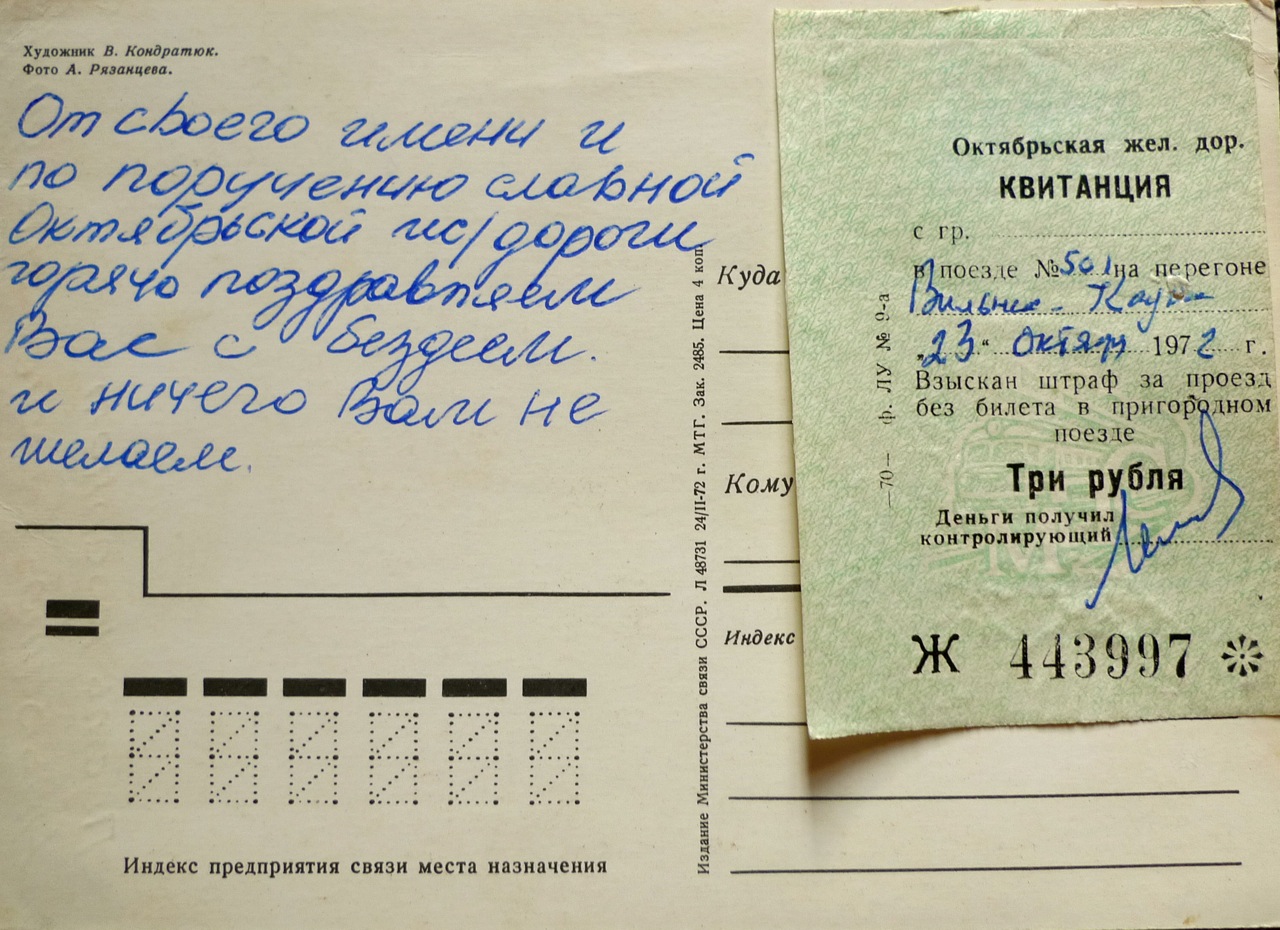 Художник В. Кондратюк.
Фото А. Рязанцева.
От своего имени и
по поручению славной
Октябрьской ж/дороги
горячо поздравляем
Вас с бездеем.
и ничего Вам не
желаем.
Индекс предприятия связи места назначения
Издание Министерства связи СССР. Л 48731 24/II-72 г. МТГ. Зак. 2485. Цена 4 коп
Куда
Кому
Индекс
Октябрьская жел. дор.
КВИТАНЦИЯ
с гр.
в поезде № 501 на перегоне
Вильнюс - Каунас
„23“ Октября 1972 г.
Взыскан штраф за проезд
без билета в пригородном
поезде
Три рубля
Деньги получил
контролирующий
Ж 443997
—70— ф. ЛУ № 9-а